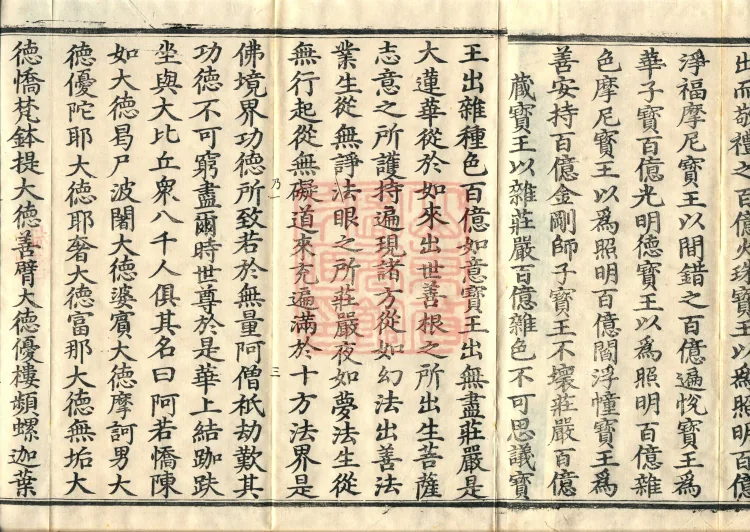 出而敬禮之百億火珠寶王以爲照明百億
淨福摩尼寶王以間錯之百億遍悅寶王以爲
華子寶百億光明德寶王以爲照明百億雜
色摩尼寶王以爲照明百億閻浮幢寶王爲
善安持百億金剛師子寶王不壞莊嚴百億
藏寶王以雜莊嚴百億雜色不可思議寶
王出雜種色百億如意寶王出無盡莊嚴是
大蓮華從於如來出世善根之所出生菩薩
志意之所護持遍現諸方從如幻法出善法
業生從無諍法眼之所莊嚴夜如夢法生從
無行起從無礙道來充遍滿於十方法界是
乃一
三
佛境界功德所致若於無量阿僧祇劫歎其
功德不可窮盡爾時世尊於是華上結跏趺
坐與大比丘衆八千人俱其名曰阿若憍陳
如大德曷尸波闍大德婆賓大德摩訶男大
德優陀耶大德耶奢大德富那大德無垢大
德憍梵鉢提大德善臂大德優樓頻螺迦葉